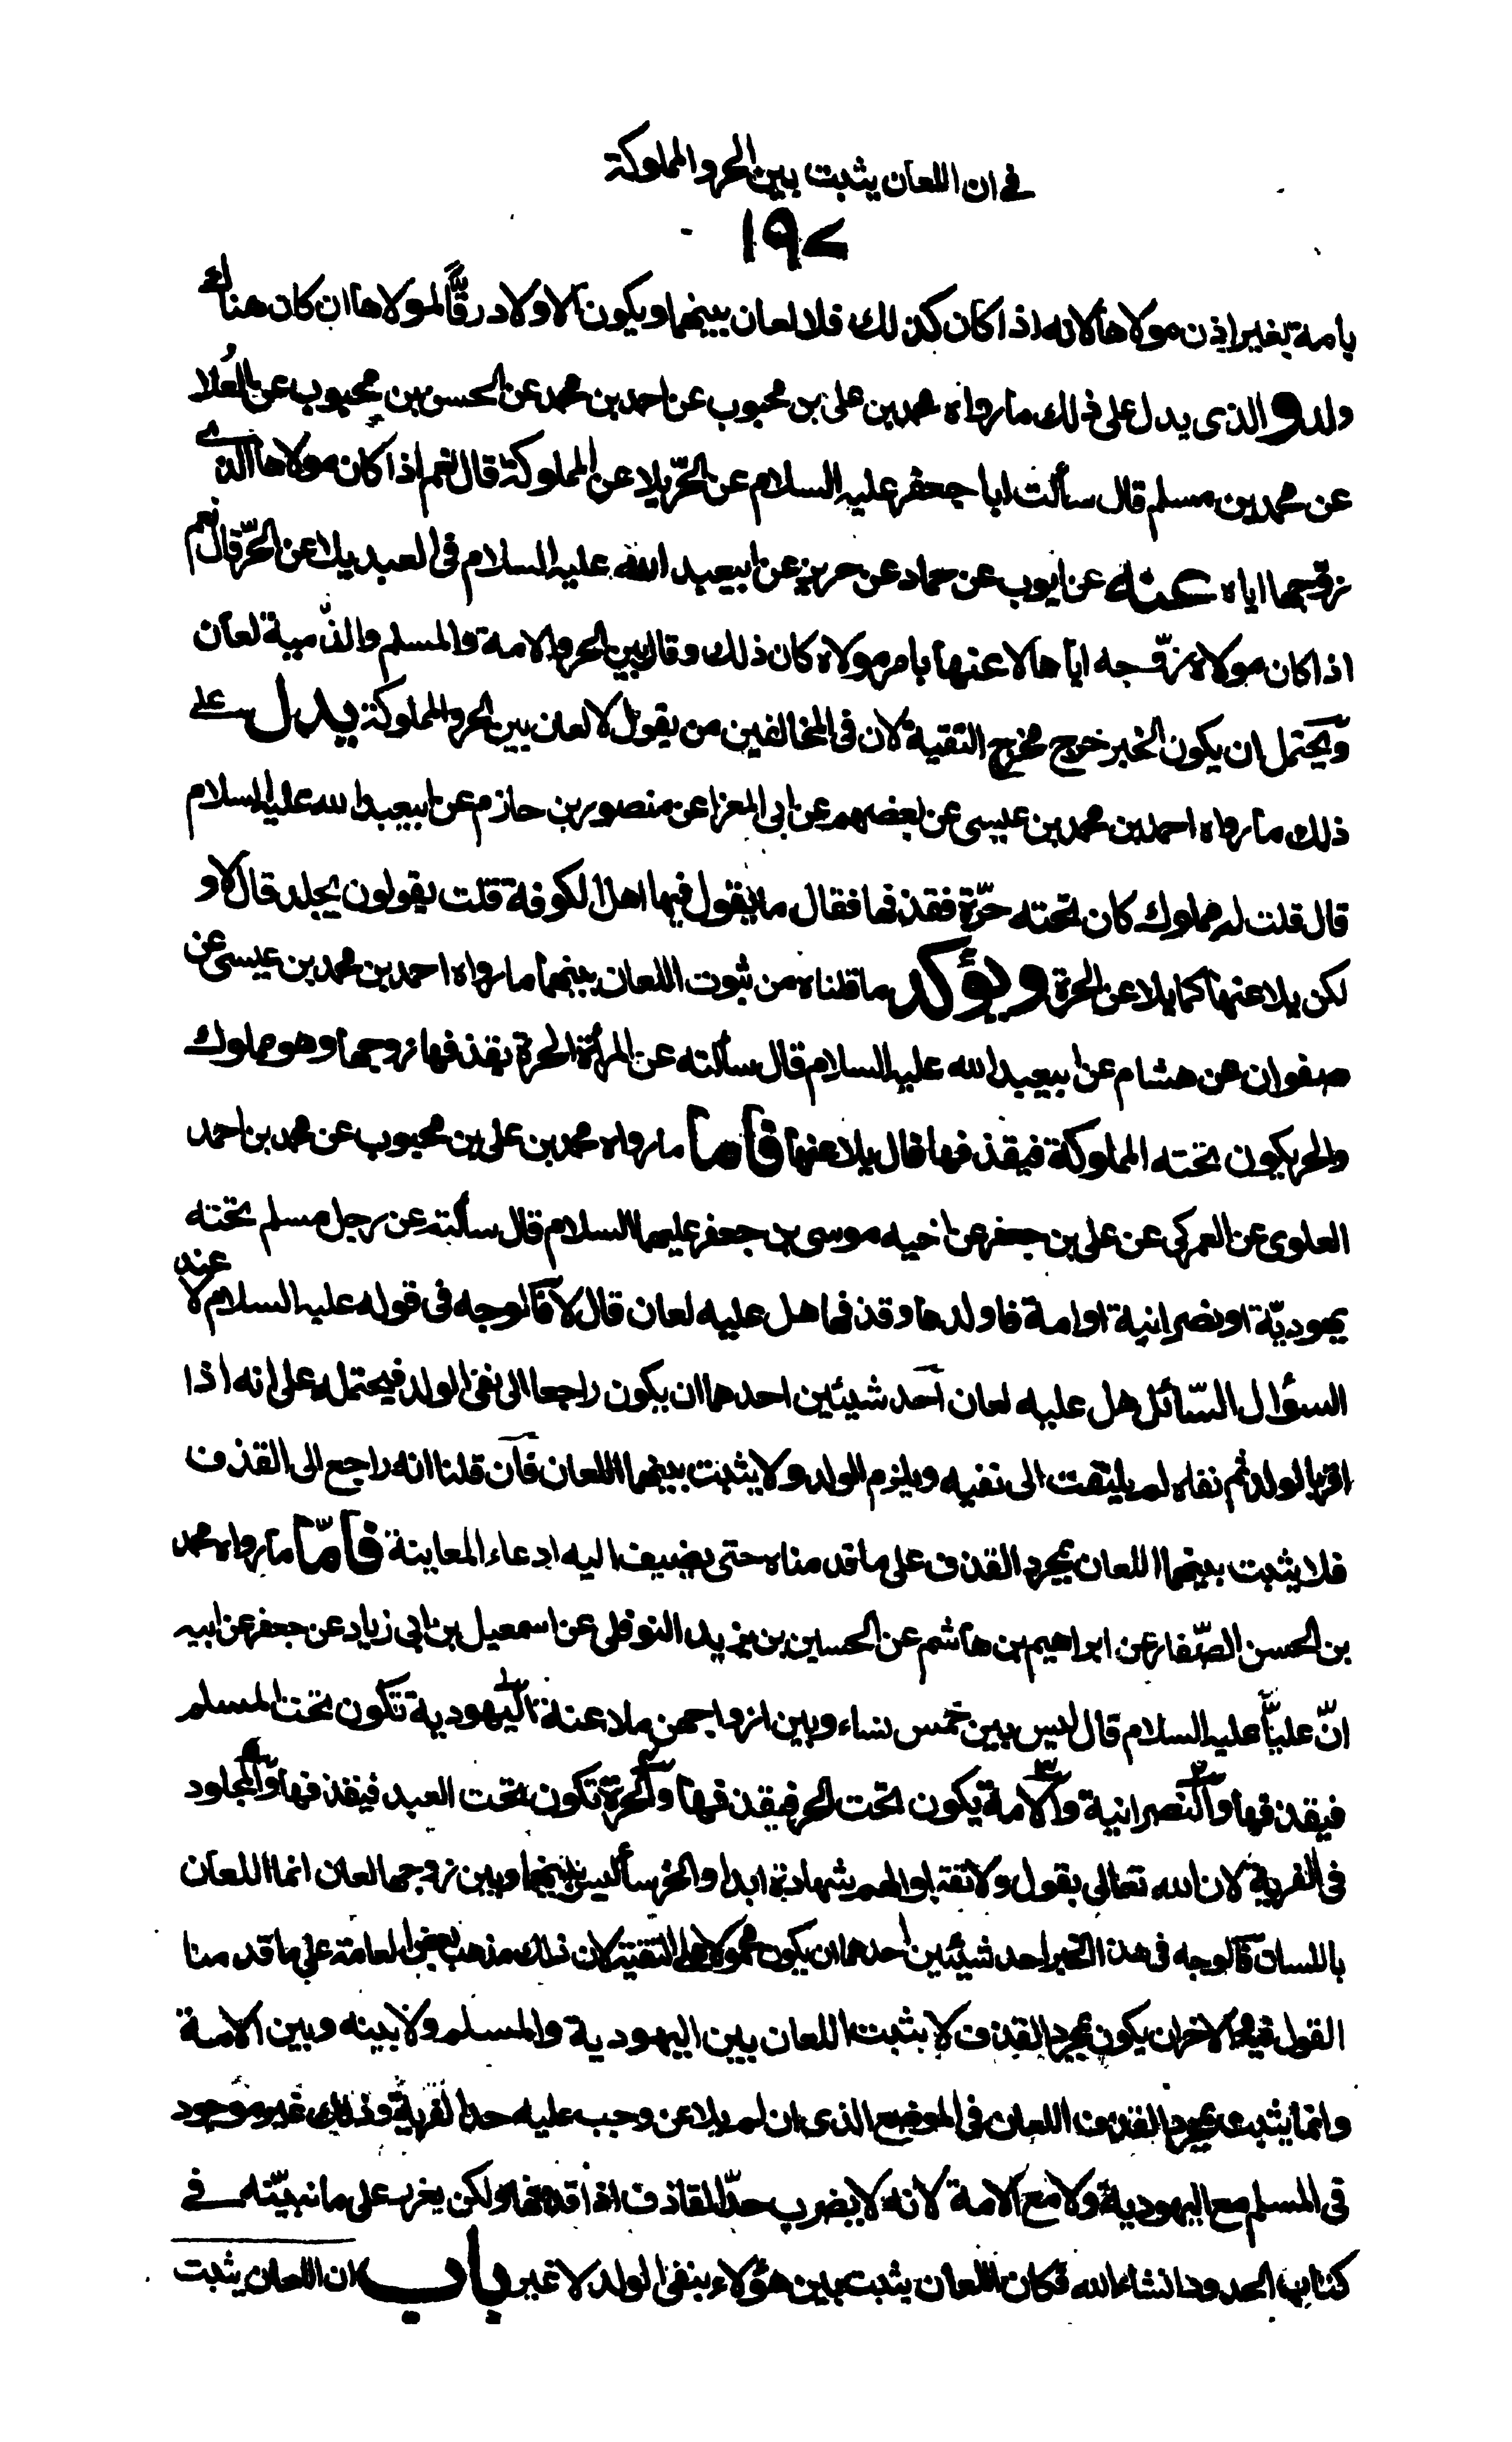 في ان اللعان يثبت بين الحر والمملوكة
١٩٧
بامة بغير اذن مولاها لانه اذا كان كذلك فلا لعان بينهما ويكون الاولاد رقّاً لمولاها ان كان هناك
ولد والذى يدل على ذلك ما رواه محمد بن على بن محبوب عن احمد بن محمد عن الحسن بن محبوب عن العلا
عن محمد بن مسلم قال سألت ابا جعفر عليه السلام عن الحّر يلاعن المملوكة قال نعم اذا كان مولاها الذى
زوّجها اياه عنه عن ايوب عن حماد عن حريز عن ابيعبد الله عليه السلام فى العبد يلاعن الحّرة قال نعم
اذا كان مولاه زوّجه اياها لاعنها بامر مولاه كان ذلك وقال بين الحر والامة والمسلم والذّمية لعان
ويحتمل ان يكون الخبر خرج مخرج التقية لان فى المخالفين من يقول لا لعان بين الحر والمملوكة يدل على
ذلك ما رواه احمد بن محمد بن عيسى عن بعضهم عن ابى المعزا عن منصور بن حازم عن ابيعبد الله عليه السلام
قال قلت له مملوك كان تحته حرّة فقذفها فقال ما يقول فيها اهل الكوفة قلت يقولون يجلد قال لا و
لكن يلاعنها كما يلاعن الحرة ويؤكد ما قلناه من ثبوت اللعان بينهما ما رواه احمد بن محمد بن عيسى عن
صفوان عن هشام عن ابيعبد الله عليه السلام قال سألته عن المرأة الحرة يقذفها زوجها وهو مملوك
والحر يكون تحته المملوكة فيقذفها قال يلاعنها فأما ما رواه محمد بن على بن محبوب عن محمد بن احمد
العلوى عن العمركى عن على بن جعفر عن اخيه موسى بن جعفر عليهما السلام قال سألته عن رجل مسلم تحته
يهوديّة او نصرانية او امة فاولدها وقذفها هل عليه لعان قال لا فالوجه فى قوله عليه السلام لا عند
السؤال السّائل هل عليه لعان احد شيئين احدهما ان يكون راجعا الى نفى الولد فيحتمله على انه اذا
اقر بالولد ثم نفاه لم يلتفت الى نفيه ويلزم الولد ولا يثبت بينهما اللعان فان قلنا انه راجع الى القذف
فلا يثبت بينهما اللعان بمجرد القذف على ما قدمناه حتى يضيف اليه ادعاء المعاينة فأمّا ما رواه محمد
بن الحسن الصّفار عن ابراهيم بن هاشم عن الحسين بن يزيد النوفلى عن اسمعيل بن ابى زياد عن جعفر عن ابيه
انّ عليّاً عليه السلام قال ليس بين خمس نساء وبين ازواجهن ملاعنة اليهودية تكون تحت المسلم
فيقذفها والنصرانية والامة يكون تحت الحر فيقذفها والحرة تكون تحت العبد فيقذفها والمجلود
فى الفرية لان الله تعالى يقول ولا تقبلوا لهم شهادة ابدا والخرسأ ليس بينها وبين زوجها لعان انما اللعان
باللسان فالوجه فى هذا الخبر احد شيئين احدهما ان يكون محمولا على التقية لان ذلك مذهب بعض العامة على ما قدمنا
القول فيه والاخر ان يكون بمجرد القذف لا يثبت اللعان بين اليهودية والمسلم ولا بينه وبين الامة
وانما يثبت بمجرد القذف اللعان فى الموضع الذى ان لم يلاعن وجب عليه حد الفرية وذلك غير موجود
فى المسلم مع اليهودية ولا مع الامة لانه لا يضرب حدّ القاذف اذا قذفها ولكن يعزر على ما نبيّنه فى
كتاب الحدود انشاء الله فكان اللعان يثبت بين هؤلاء بنفى الولد لا غير باب ان اللعان يثبت